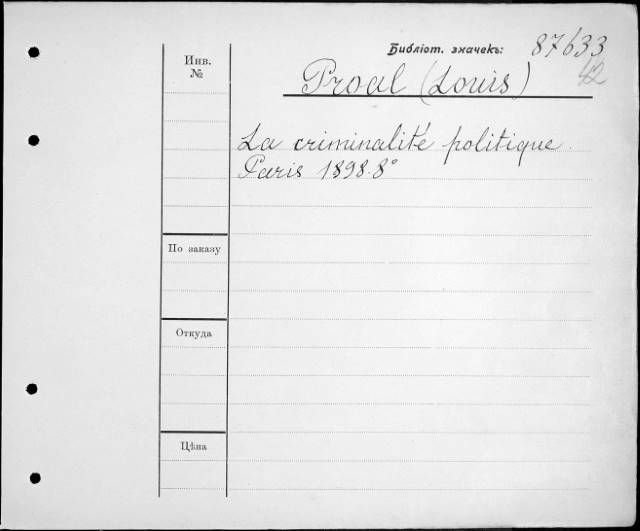 Библіот. значекъ: 87633
42
Инв.
№
Proal (Louis)
La criminalité politique.
Paris 1898. 8°
По заказу
Откуда
Цѣна